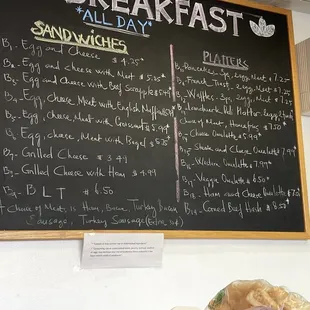 BREAKFAST
*ALL DAY*
SANDWICHES
B1. Egg and Cheese $4.25*
B2. Egg and cheese with Meat $5.25*
B3. Egg and Cheese with Beef Scrapple $5.99*
B4. Egg, cheese, Meat with English Muffin
B5. Egg, Cheese, Meat with Croissant $5.99*
B6. Egg, cheese, Meat with Bagel $5.25*
B7. Grilled Cheese $3.49
B8. Grilled Cheese with Ham $4.99
B L T $6.50
* Choice of Meats is Ham, Bacon, Turkey Bacon
Sausage, Turkey Sausage
PLATTERS
Pancake, Egg, Meat $7.25
French Toast, Egg, Meat $7.25
Waffles, Egg, Meat $7.25
Platter
Choice of Meat, $7.50*
Cheese Omelette $5.99
Steak and Cheese Omelette 7.99
Western Omelette $7.99*
Veggie Omelette $6.50*
Ham and Cheese Omelette
Corned Beef Hash $8.50*